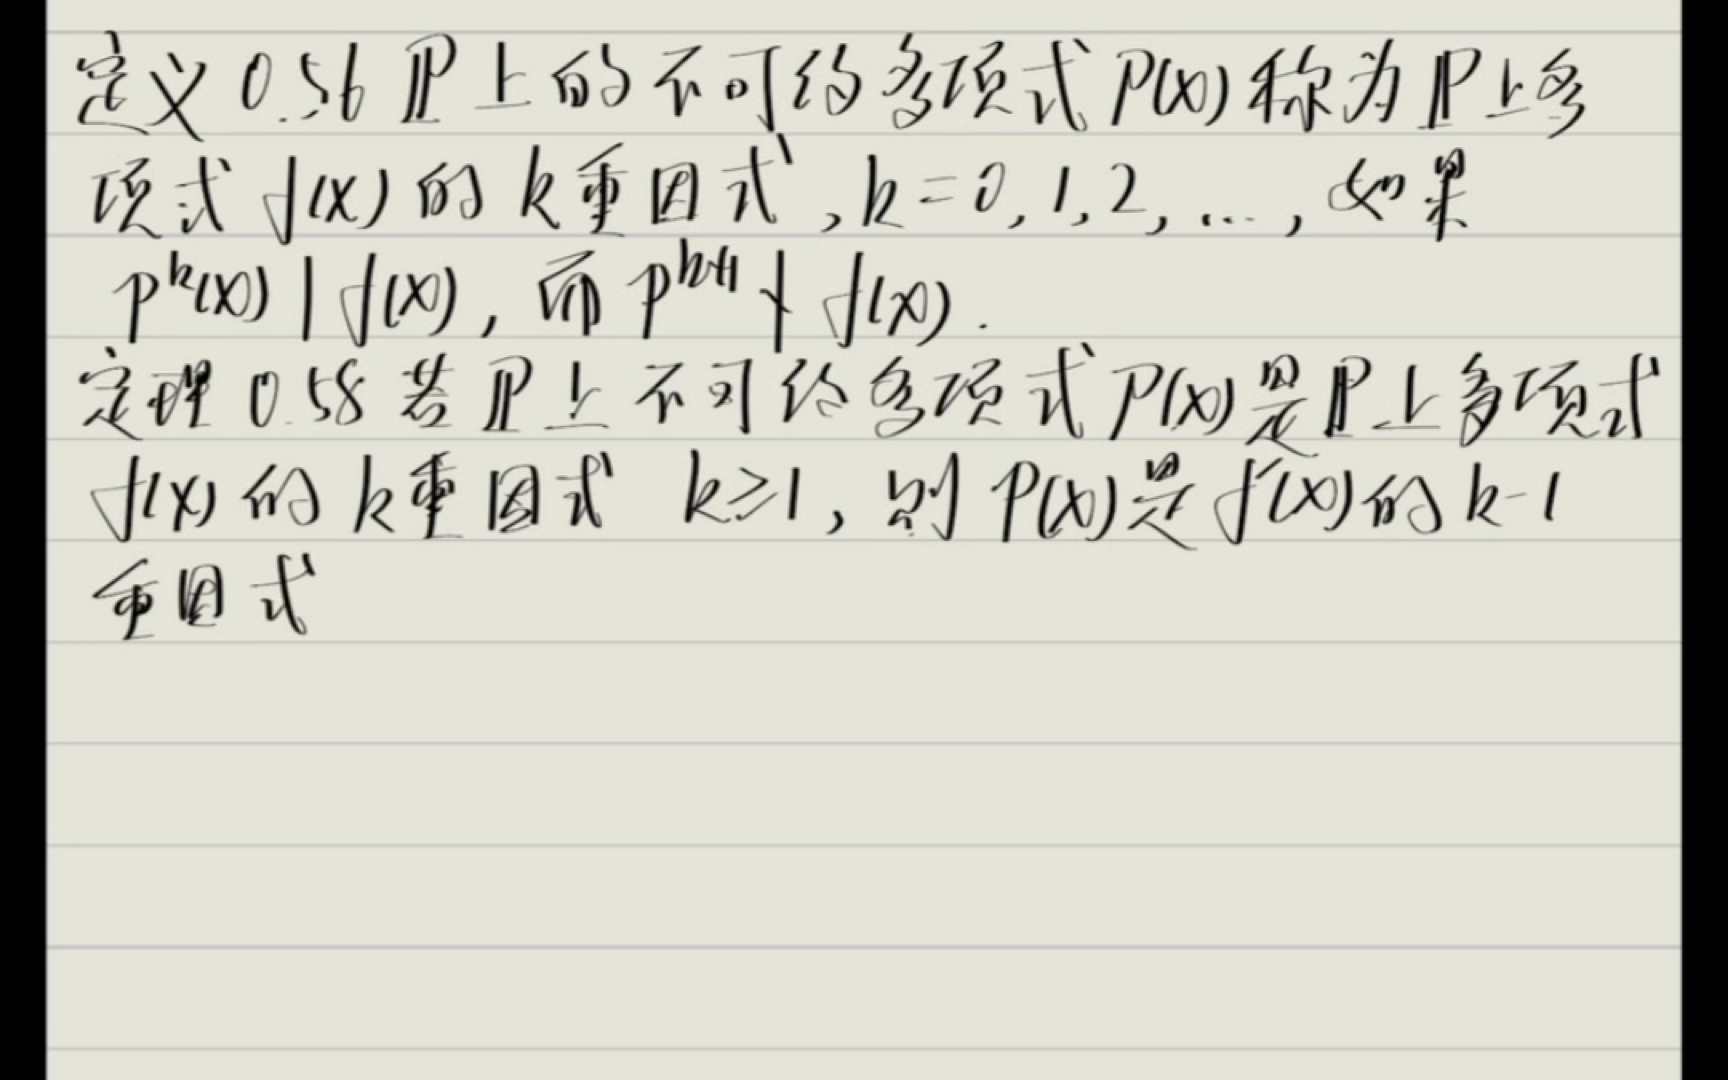 定义 0.56 ℙ上的不可约多项式 P(x) 称为 ℙ上多
项式 f(x) 的 k重因式, k=0,1,2,…, 如果
p^k(x) | f(x), 而 p^{k+1} ∤ f(x).
定理 0.58 若 ℙ上不可约多项式 P(x)是ℙ上多项式
f(x) 的 k重因式 k≥1, 则 P(x)是 f'(x)的 k-1
重因式